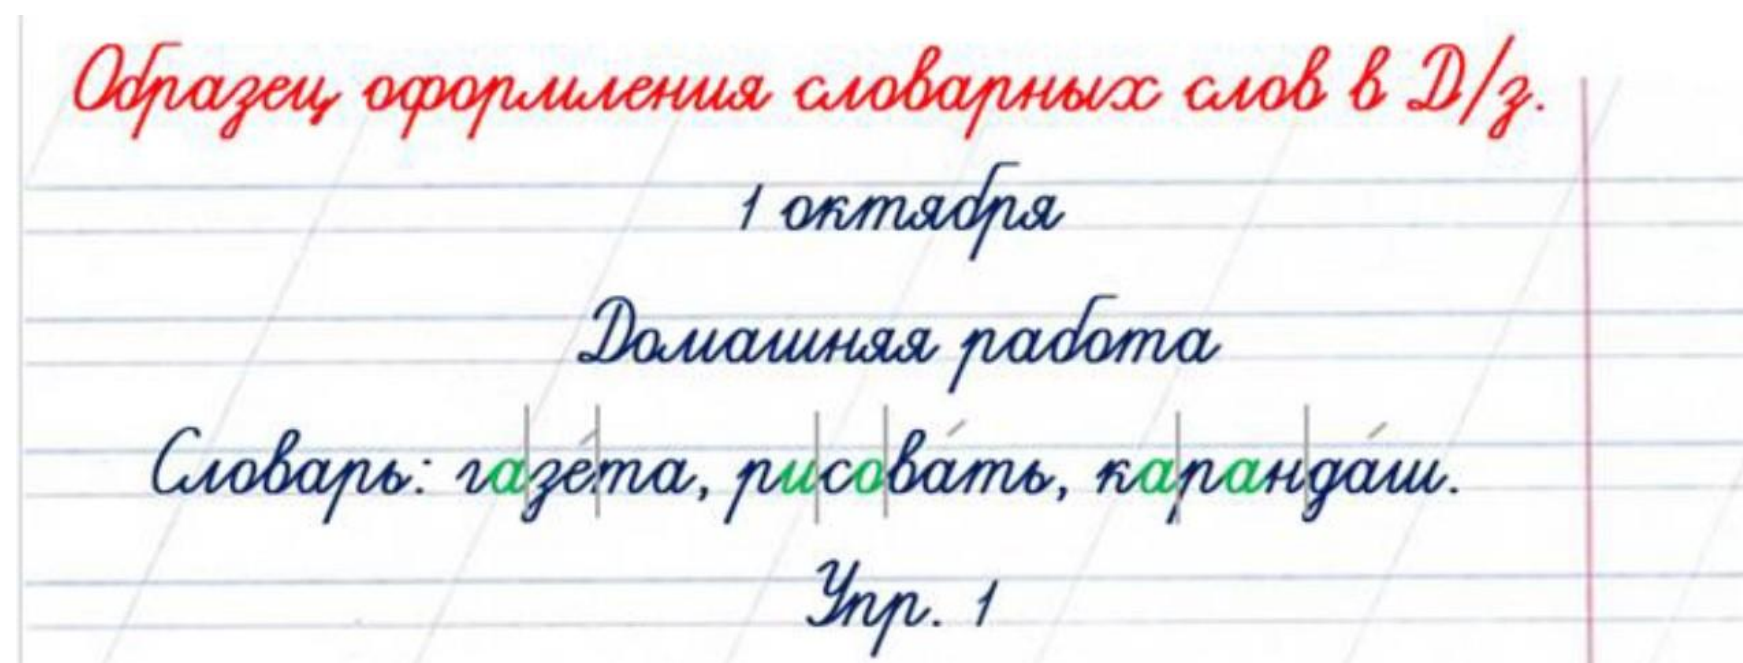 Образец оформления словарных слов в Д/з.
1 октября
Домашняя работа
Словарь: га|зе́|та, ри|со|ва́ть, ка|ран|да́ш.
Упр. 1